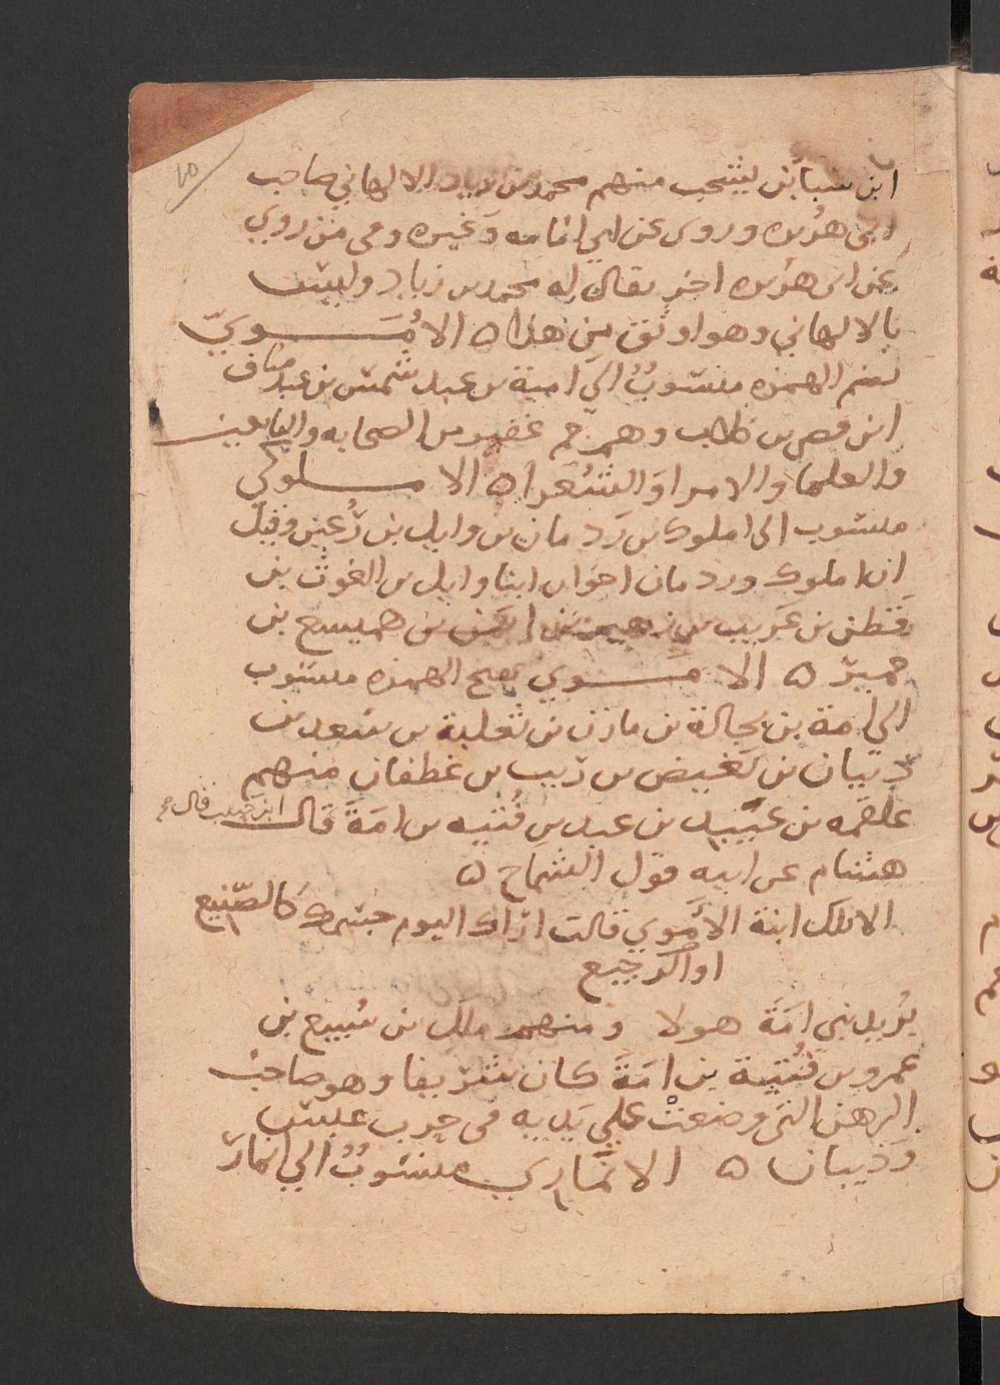 ابن سبا بن يشجب منهم محمد بن زياد الالهاني صاحب
ابي هريره وروى عن ابي امامه وغيره وفي من روي
عن ابي هريره اخر يقال له محمد بن زياد وليس
بالالهاني وهو اوثق من هذا ه الاموي
بضم الهمزه منسوب الي امية بن عبد شمس بن عبد مناف
ابن قصي بن كلاب وهم جم غفير من الصحابه والتابعين
والعلما والامرا والشعرا ه الاملوكي
منسوب الى املوك بن ردمان بن وايل بن رعين وقيل
ان املوك وردمان اخوان ابنا وايل بن الغوث بن
قطن بن عريب بن زهير بن ايمن بن هميسع بن
حمير ه الاموي بفتح الهمزه منسوب
الي امة بن بجالة بن مازن بن ثعلبة بن سعد بن
ذبيان بن بغيض بن ريب بن غطفان منهم
علقمه بن عبيد بن عبد بن فتيه بن امة قال ابن حبيب قال
هشام عن ابيه قول الشماخ ه
الا تلك ابنة الاموي قالت اراك اليوم جسمك كالصنيع
او الرجيع
يريد بني امة هولا ومنهم ملك بن سبيع بن
عمرو بن فتية بن امة كان شريفا وهو صاحب
الرهن التي وضعت علي يديه في حرب عبس
وذبيان ه الانماري منسوب الي انمار